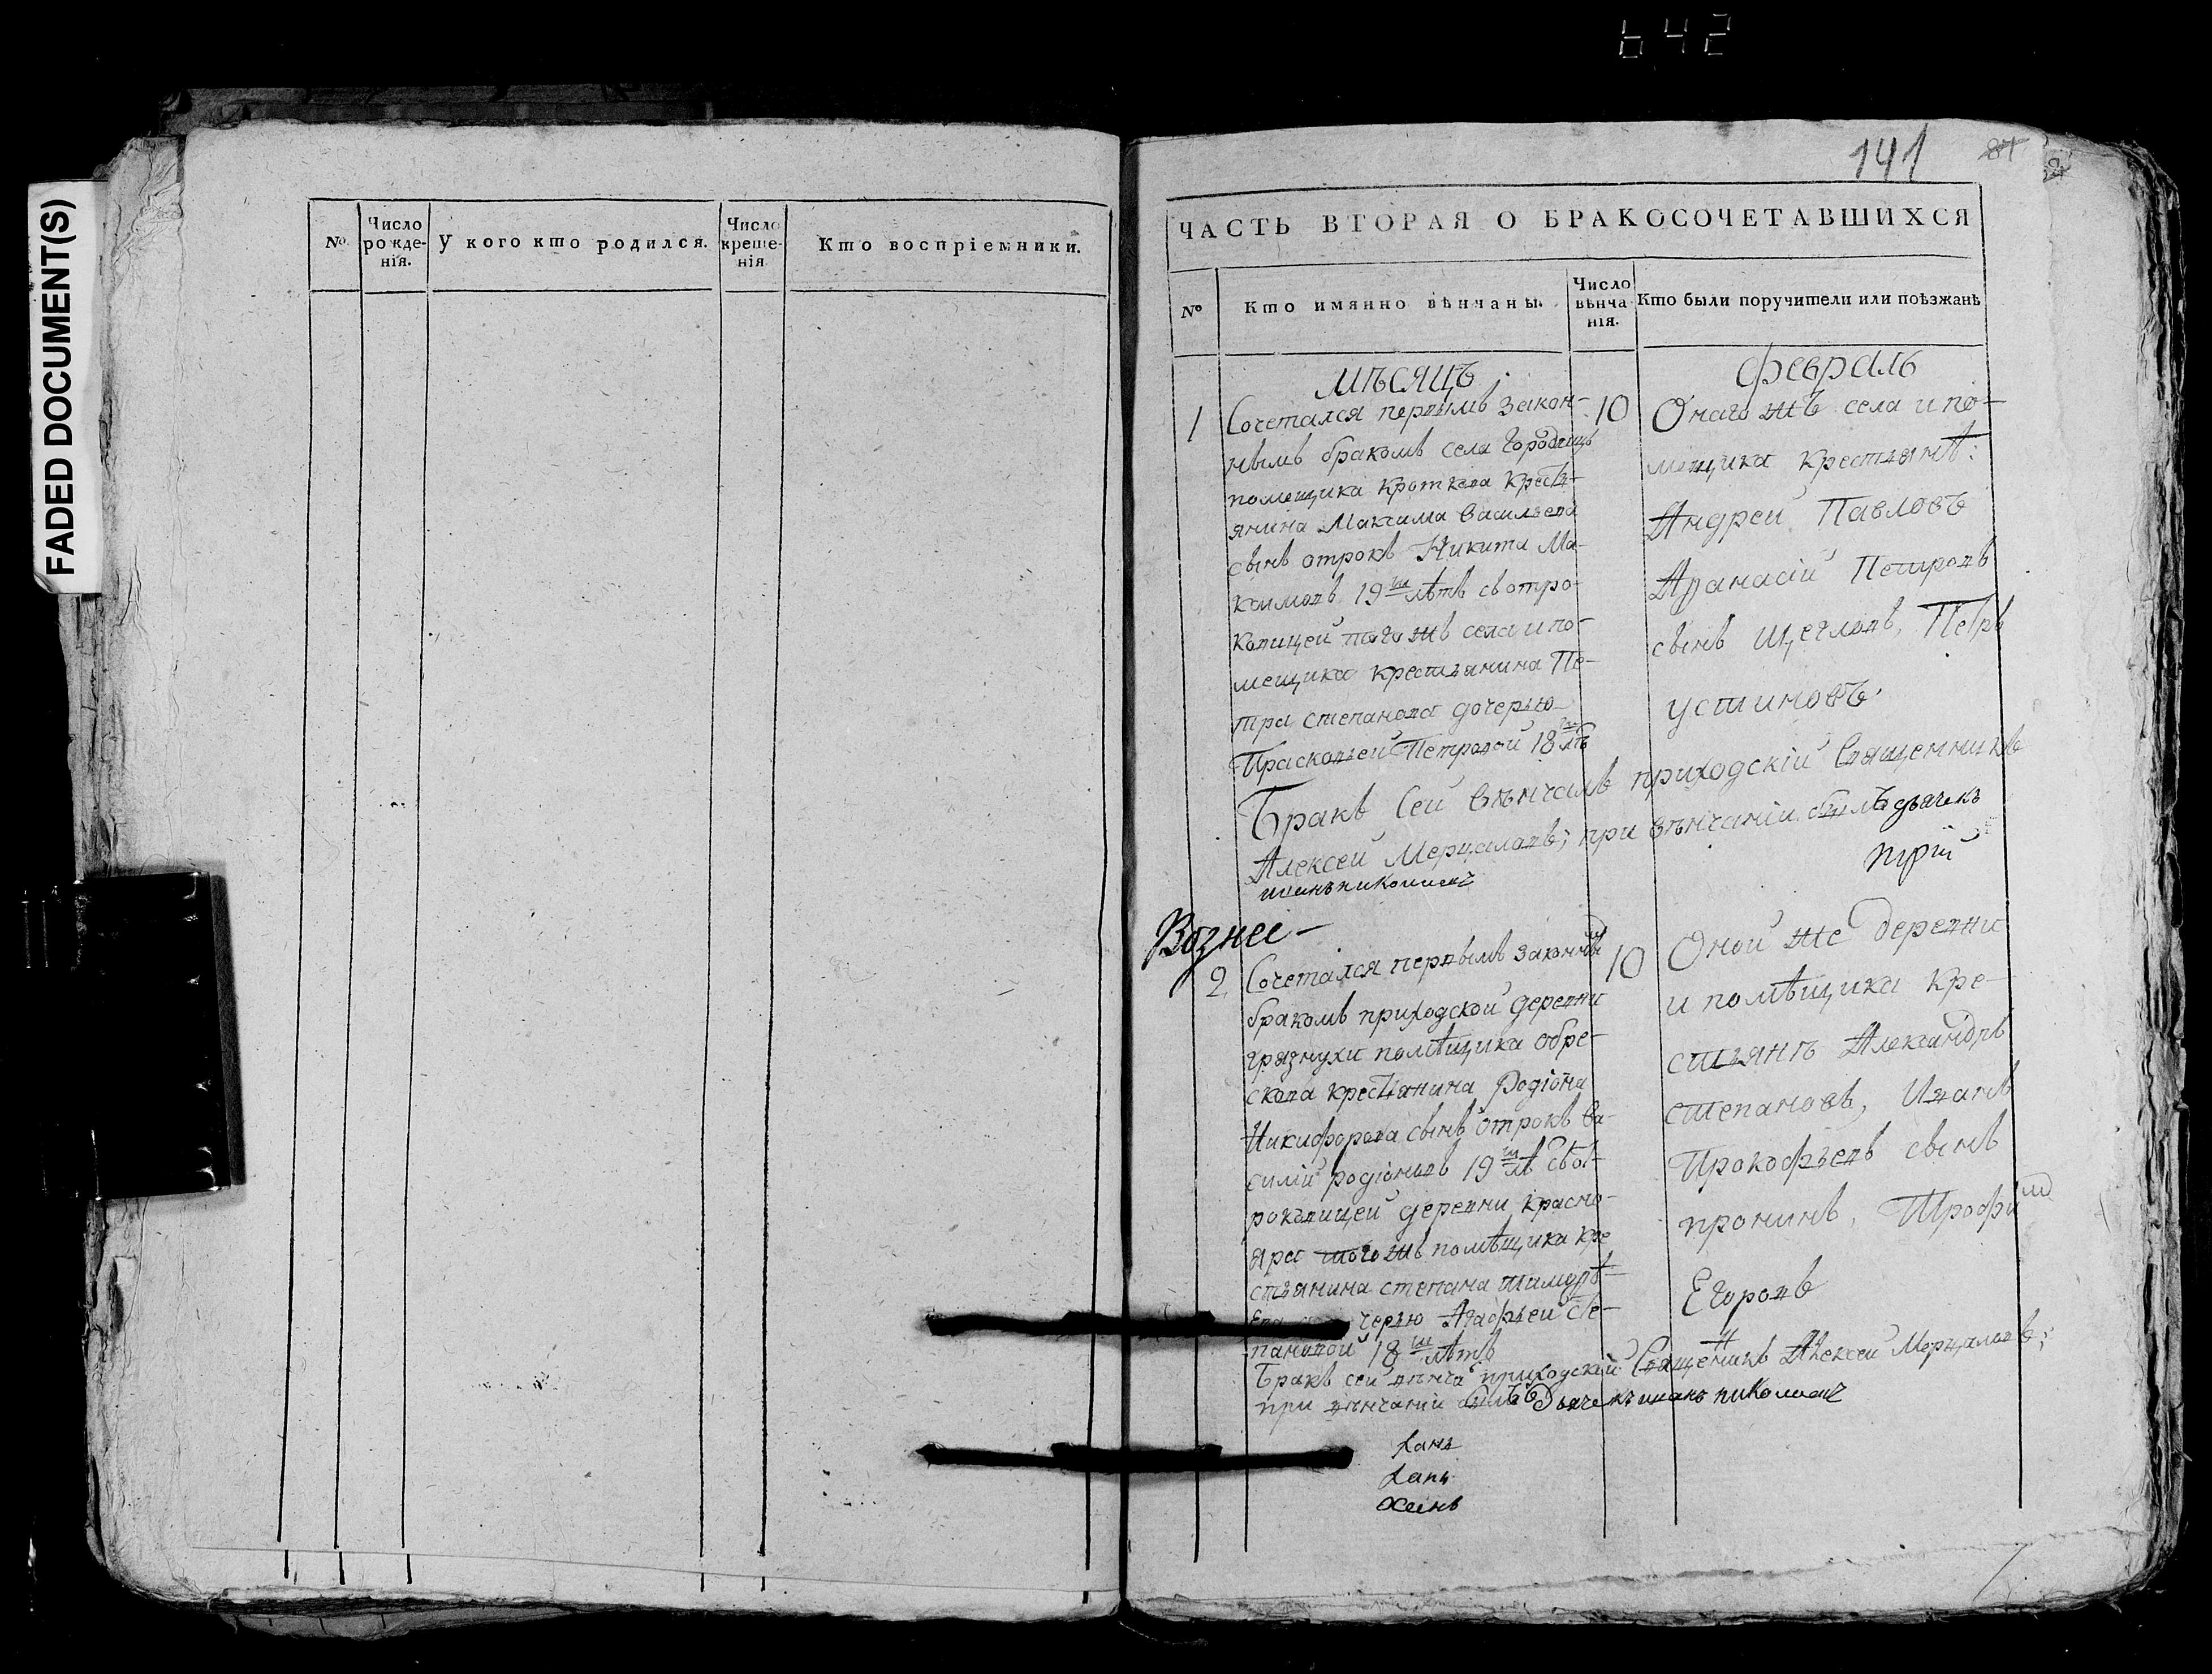 642
141
87
FADED DOCUMENT(S)
№
Число рожденія.
У кого кто родился.
Число крещенія
Кто воспріемники.
ЧАСТЬ ВТОРАЯ О БРАКОСОЧЕТАВШИХСЯ
№
Кто имянно вѣнчаны.
Число вѣнчанія.
Кто были поручители или поѣзжанѣ
мѣсяцъ
февраль
1
Сочетался первымъ закон-
нымъ бракомъ села Городищъ
помещика Кроткова Кресть-
янина Максима Васильева
сынъ отрокъ Никита Ма-
ксимовъ 19 лѣтъ съ отро-
ковицей тогожъ села и по-
мещика крестьянина Пе-
тра Степанова дочерью
Прасковьей Петровой 18 лѣ
10
Онаго жъ села и по-
мещика крестьянѣ:
Андрей Павловъ
Афанасій Петровъ
сынъ Щегловъ, Петръ
устиновъ
Бракъ Сей Вѣнчалъ приходскій Священникъ
Алексей Мерцаловъ; при вѣнчаніи былъ дьячекъ
Вознес-
2
Сочетался первымъ законны
бракомъ приходской деревни
грязнухи помѣщика обре-
скова крестьянина Родіона
Никифорова сынъ отрокъ Ва-
силій родіоновъ 19 лѣ съ от-
роковицей деревни красно-
яра тогожъ помѣщика кре
стьянина степана тимофѣ-
ева дочерью Агафьей Сте-
пановой 18 лѣтъ
10
Оной же деревни
и помѣщика кре-
стьянъ Александръ
степановъ, Иванъ
Прокофьевъ сынъ
пронинъ, Трофи
Егоровъ
Бракъ сей вѣнча приходскій Священикъ Алексей Мерцаловъ;
при вѣнчаніи былъ Дьячекъ иванъ николаевъ